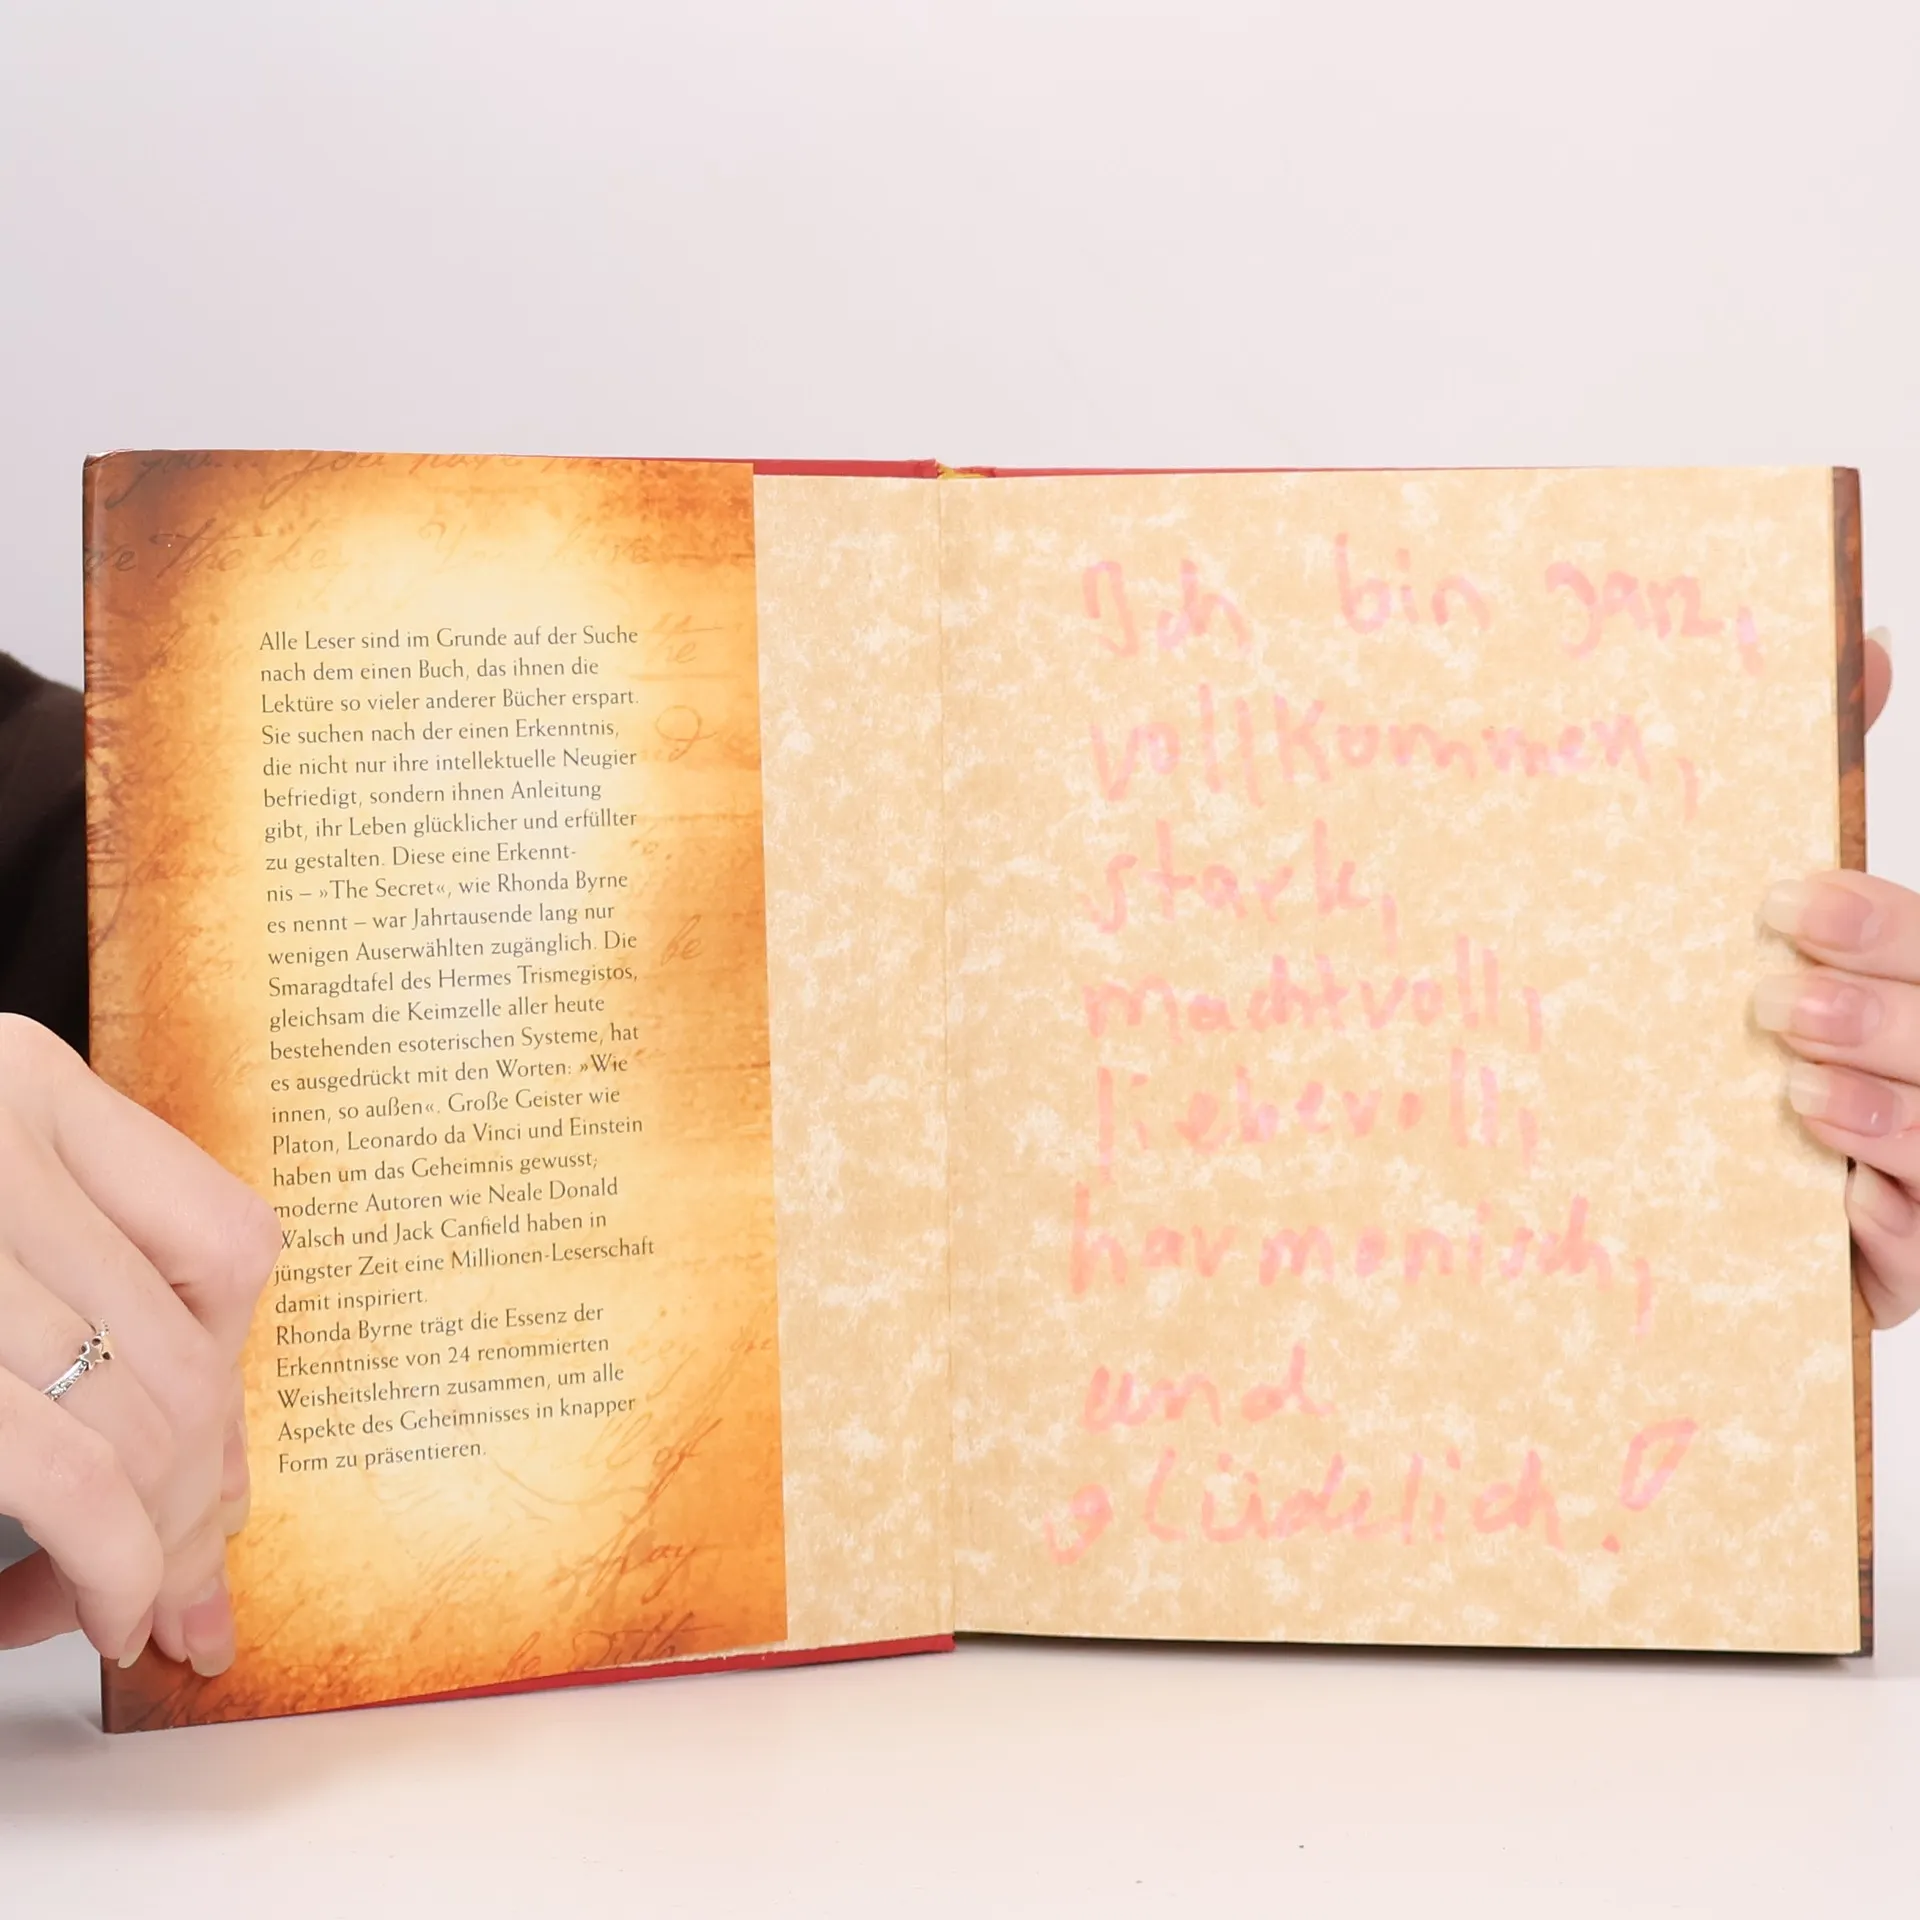 Alle Leser sind im Grunde auf der Suche
nach dem einen Buch, das ihnen die
Lektüre so vieler anderer Bücher erspart.
Sie suchen nach der einen Erkenntnis,
die nicht nur ihre intellektuelle Neugier
befriedigt, sondern ihnen Anleitung
gibt, ihr Leben glücklicher und erfüllter
zu gestalten. Diese eine Erkennt-
nis – »The Secret«, wie Rhonda Byrne
es nennt – war Jahrtausende lang nur
wenigen Auserwählten zugänglich. Die
Smaragdtafel des Hermes Trismegistos,
gleichsam die Keimzelle aller heute
bestehenden esoterischen Systeme, hat
es ausgedrückt mit den Worten: »Wie
innen, so außen«. Große Geister wie
Platon, Leonardo da Vinci und Einstein
haben um das Geheimnis gewusst;
moderne Autoren wie Neale Donald
Walsch und Jack Canfield haben in
jüngster Zeit eine Millionen-Leserschaft
damit inspiriert.
Rhonda Byrne trägt die Essenz der
Erkenntnisse von 24 renommierten
Weisheitslehrern zusammen, um alle
Aspekte des Geheimnisses in knapper
Form zu präsentieren.
Ich bin ganz,
vollkommen,
stark,
machtvoll,
liebevoll,
harmonisch,
und
glücklich!